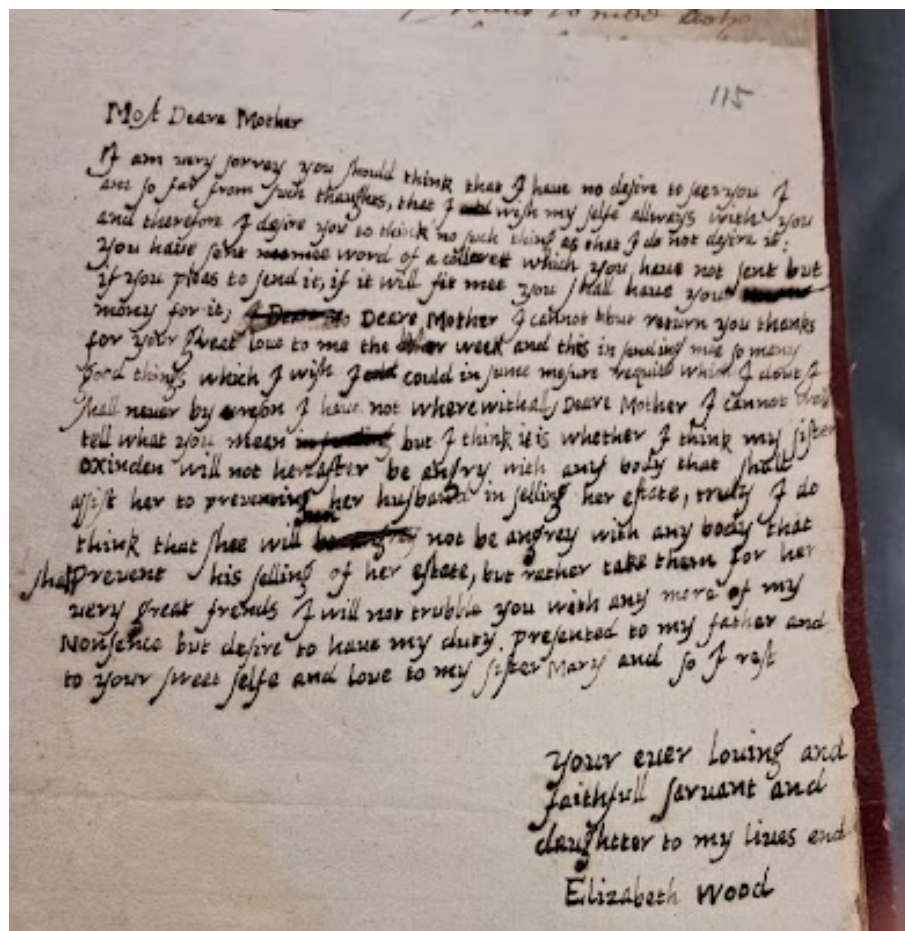 115
Most Deare Mother
I am very sorrey you should think that I have no desire to see you I
am so far from such thaughts, that I wish my selfe allways with you
and therefore I desire you to think no such thing as that I do not desire it;
you haue sent mee word of a colleret which you haue not sent but
if you pleas to send it, if it will fit mee you shall haue your
money for it, Deare Mother I cannot but return you thanks
for your great loue to me the other week and this in sending mee so many
good things which I wish I could in sume mesure requit which I dout I
shall never by reson I haue not wherewithall, Deare Mother I cannot well
tell what you mean but I think it is whether I think my sister
oxinden will not hereafter be angry with any body that shall
assist her to preventing her husband in selling her estate, truly I do
think that shee will not be angrey with any body that
shall prevent his selling of her estate, but rather take them for her
uery great frends I will not trubble you with any more of my
Nonsence but desire to haue my duty presented to my father and
to your sweet selfe and loue to my sister Mary and so I rest
your euer louing and
faithfull saruant and
daughtter to my liues end
Elizabeth Wood